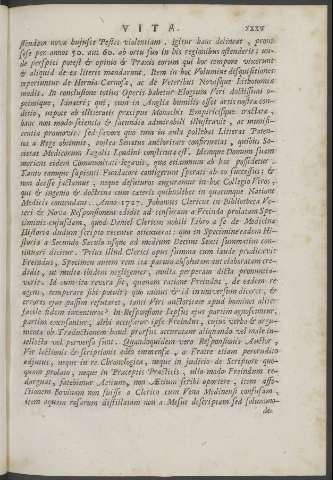 VITA.
XXXV
stendam novæ hujusce Pestis violentiam. Igitur hanc delineat, prout
sese per annos 50. aut 60. ab ortu suo in his regionibus ostenderit; un-
de perspici potest & opinio & Praxis eorum qui hoc tempore vixerunt
& aliquid de ea literis mandarunt. Item in hoc Volumine disquisitiones
reperiuntur de Hernia Carnosa, ac de Veteribus Novisque Lithotomiæ
modis. In conclusione totius Operis habetur Elogium Viri doctissimi
optimique, Linacri; qui, cum in Anglia humilis esset artis nostræ condi-
tio, utpote ab illiteratis præcipue Monachis Empiricisque tractata,
hanc non modo scientia & facundia admirabili illustravit, at munifi-
centia promovit: sed favore quo tum in aula pollebat Literas Paten-
tes a Rege obtinuit, postea Senatus auctoritate confirmatas, quibus So-
cietas Medicorum legalis Londini constituta est. Idemque Domum suam
mortiens eidem Communitati legavit, qua etiamnum ab hac possidetur.
Tanto tamque sapienti Fundatore contigerunt sperati ab eo successus; &
non deesse factamur, neque defuturos auguramur in hoc Collegio Viros,
qui & ingenio & doctrina cum cæteris quibuslibet in quacunque Natione
Medicis contendant.... Anno 1727. Johannes Clericus in Bibliotheca Ve-
teri & Nova Responsionem edidit ad censuram a Freindo prolatam Spe-
ciminis cujusdam, quod Daniel Clericus nobili Libro a se de Medicinæ
Historia dudum scripto recenter attexuerat: quo in Specimine eadem Hi-
storia a Secundo Sæculo usque ad medium Decimi Sexti summatim con-
tinuari dicitur. Prius illud Clerici opus summa cum laude prædicavit
Freindus, Specimen autem non ita paratu absolutum aut elaboratum cre-
didit, ut multo ibidem negligenter, multa perperam dicta pronuntia-
verit. Id cum ita revera sit, quonam ratione Freindus, de eadem re
agens, temperare sibi potuit; quo minus & id in universum diceret, &
errores ejus passim refutaret, tanti Viri auctoritate apud homines alios
facile fidem inventuros? In Responsione Ipsius ejus partim agnoscuntur,
partim excusantur; alibi accusatur ipse Freindus, cujus verba & argu-
menta ob Traductionem haud prorsus accuratam aliquando vel male in-
tellecta vel perversa sunt. Quandoquidem vero Responsionis Auctor,
Vir lectionis & scriptionis adeo immensæ, a Fratre etiam perperudito
adjutus, neque in re Chronologica, neque in judicio de Scriptore quo-
quam prolato, neque in Præceptis Practicis, ullo modo Freindum re-
darguat, fatebimur Aetium, non Ætium scribi oportere, item affe-
ctionem Bovinam non fuisse a Clerico cum Vena Medinensi confusam,
item aquam rosarum distillatam non a Mesue descriptam sed solummo-
do